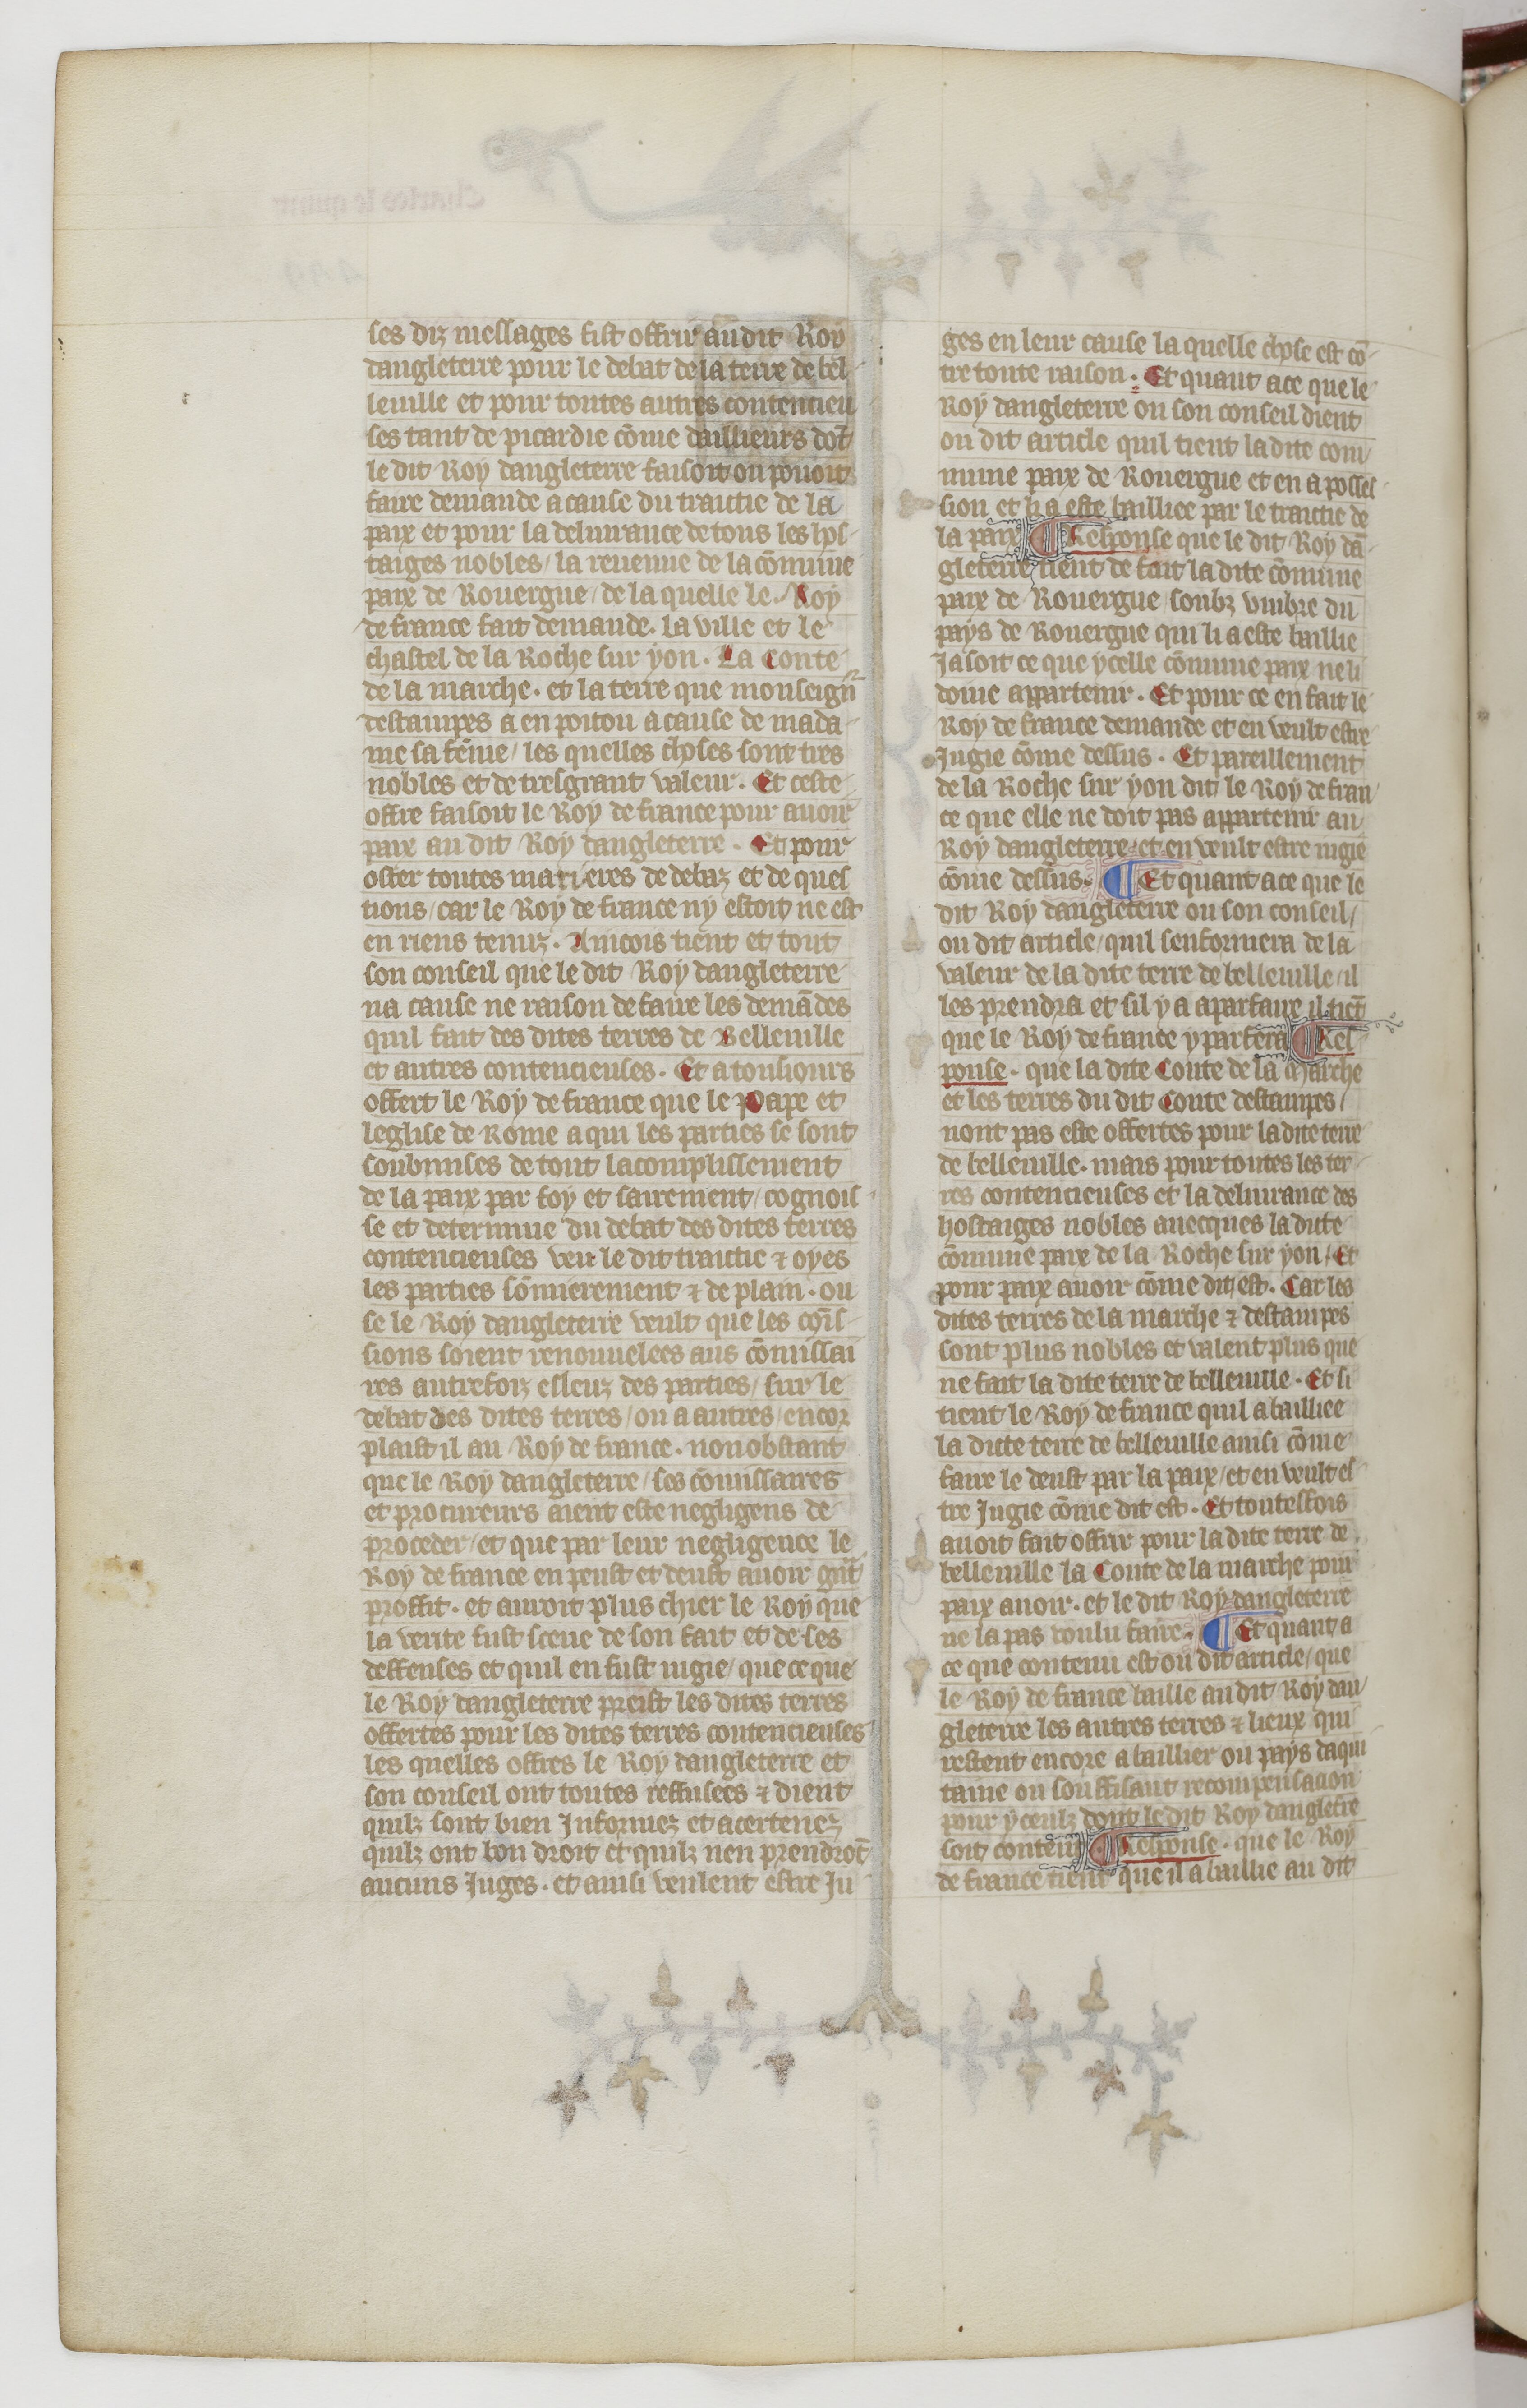 ses diz messages fist offrir audit Roy
dangleterre pour le debat de la terre de bel
leuille et pour toutes autres contencieu
ses tant de picardie cōme daillieurs dōt
le dit Roy dangleterre faisoit ou pouoit
faire demande a cause du traictie de la
paix et pour la deliurance de tous les hos
taiges nobles / la reuenue de la cōmune
paix de Rouergue / de la quelle le Roy
de france fait demande. la ville et le
chastel de la Roche sur yon. La Conte
de la marche. et la terre que monseigṅ
destampes a en poitou a cause de mada
me sa fēme / les quelles choses sont tres
nobles et de tresgrant valeur. Et ceste
offre faisoit le Roy de france pour auoir
paix au dit Roy dangleterre. Et pour
oster toutes matieres de debaz et de ques
tions / car le Roy de france ny estoit ne est
en riens tenuz. Aincois tient et tout
son conseil que le dit Roy dangleterre
na cause ne raison de faire les demādes
quil fait des dites terres de Belleuille
et autres contencieuses. Et a tousiours
offert le Roy de france que le Pape et
leglise de Rome a qui les parties se sont
soubmises de tout lacomplissement
de la paix par foy et sairement / cognois
se et determine du debat des dites terres
contencieuses veu le dit traictie & oyes
les parties sōmierement & de plain. ou
se le Roy dangleterre veult que les cōis
sions soient renouuelees aus cōmissai
res autrefoiz esleuz des parties / sur le
debat des dites terres / ou a autres / encor
plaist il au Roy de france. nonobstant
que le Roy dangleterre / ses cōmissaires
et procureurs aient este negligens de
proceder / et que par leur negligence le
Roy de france en peust et deust auoir grāt
proffit. et auroit plus chier le Roy que
la verite fust sceue de son fait et de ses
deffenses et quil en fust iugie / que ce que
le Roy dangleterre preist les dites terres
offertes pour les dites terres contencieuses
les quelles offres le Roy dangleterre et
son conseil ont toutes reffusees & dient
quilz sont bien Informez et acertenez
quilz ont bon droit et quilz nen prendrōt
aucuns Juges. et ainsi veulent estre Ju
ges en leur cause la quelle chose est cō
tre toute raison. Et quant a ce que le
Roy dangleterre ou son conseil dient
ou dit article quil tient la dite com
mune paix de Rouergue et en a posses
sion et li a este bailliee par le traictie de
la paix ¶ Response que le dit Roy dā
gleterre tient de fait la dite cōmune
paix de Rouergue soubz vmbre du
pays de Rouergue qui li a este baillie
Jasoit ce que ycelle cōmune paix ne li
doiue appartenir. Et pour ce en fait le
Roy de france demande et en veult estre
Jugie cōme dessus. Et pareillement
de la Roche sur yon dit le Roy de fran
ce que elle ne doit pas appartenir au
Roy dangleterre. et en veult estre iugie
cōme dessus. ¶ Et quant a ce que le
dit Roy dangleterre ou son conseil /
ou dit article / quil senformera de la
valeur de la dite terre de belleuille / il
les prendra et sil y a a parfaire il tiēt
que le Roy de france y parfera ¶ Res
ponse. que la dite Conte de la Marche
et les terres du dit Conte destampes /
nont pas este offertes pour la dite terre
de belleuille. mais pour toutes les ter
res contencieuses et la deliurance des
hostaiges nobles auecques la dite
cōmune paix de la Roche sur yon / Et
pour paix auoir cōme dit est. Car les
dites terres de la marche & destampes
sont plus nobles et valent plus que
ne fait la dite terre de belleuille. Et si
tient le Roy de france quil a bailliee
la dicte terre de belleuille ainsi cōme
faire le deust par la paix / et en veult es
tre Jugie cōme dit est. Et toutesfois
auoit fait offrir pour la dite terre de
belleuille la Conte de la marche pour
paix auoir. et le dit Roy dangleterre
ne la pas voulu faire. ¶ Et quant a
ce que contenu est ou dit article / que
le Roy de france baille au dit Roy dan
gleterre les autres terres & lieux qui
restent encore a baillier ou pays daqui
taine ou souffisant recompensacion
pour yceulz dont le dit Roy dangletre
soit content ¶ Response. que le Roy
de france tient que il a baillie au dit